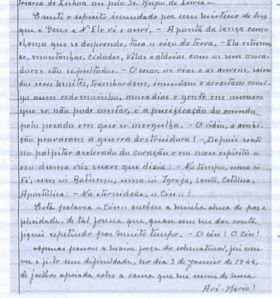 triarca de Lisboa ou pelo Sr. Bispo de Leiria».
E senti o espírito inundado por um mistério de luz
que é Deus e N'Ele vi e ouvi, – A ponta da lança como
chama que se desprende, toca o eixo da terra, – Ela estreme-
ce, montanhas, cidades, vilas e aldeias com os seus mora-
dores são sepultados. – O mar, os rios e as nuvens, saiem
dos seus limites, transbordam, inundam e arrastam consi-
go num redemoinho, moradias e gente em número
que se não pode contar, é a purificação do mundo
pelo pecado em que se mergulha. – O ódio, a ambi-
ção provocam a guerra destruidora! – Depois senti
no palpitar acelerado do coração e no meu espírito o
eco duma voz suave que dizia: – No tempo, uma só
Fé, um só Batismo, uma só Igreja, Santa, Católica,
Apostólica: – Na eternidade, o Céu!
Esta palavra «Céu» encheu a minha alma de paz e
felicidade, de tal forma que, quase sem me dar conta,
fiquei repetindo por muito tempo, – O Céu! O Céu!
Apenas passou a maior força do sobrenatural, fui escre-
ver e fi-lo sem dificuldade, no dia 3 de janeiro de 1944,
de joelhos apoiada sobre a cama que me serviu de mesa.
Avé-Maria!